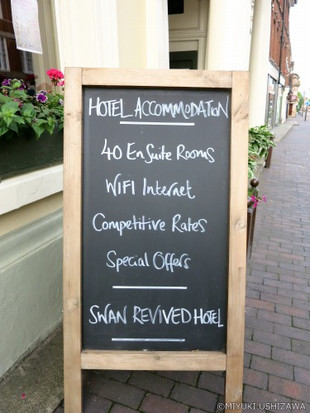 HOTEL ACCOMMODATION
40 En Suite Rooms
WIFI Internet
Competitive Rates
Special Offers
SWAN REVIVED HOTEL
©MIYUKI USHIZAWA